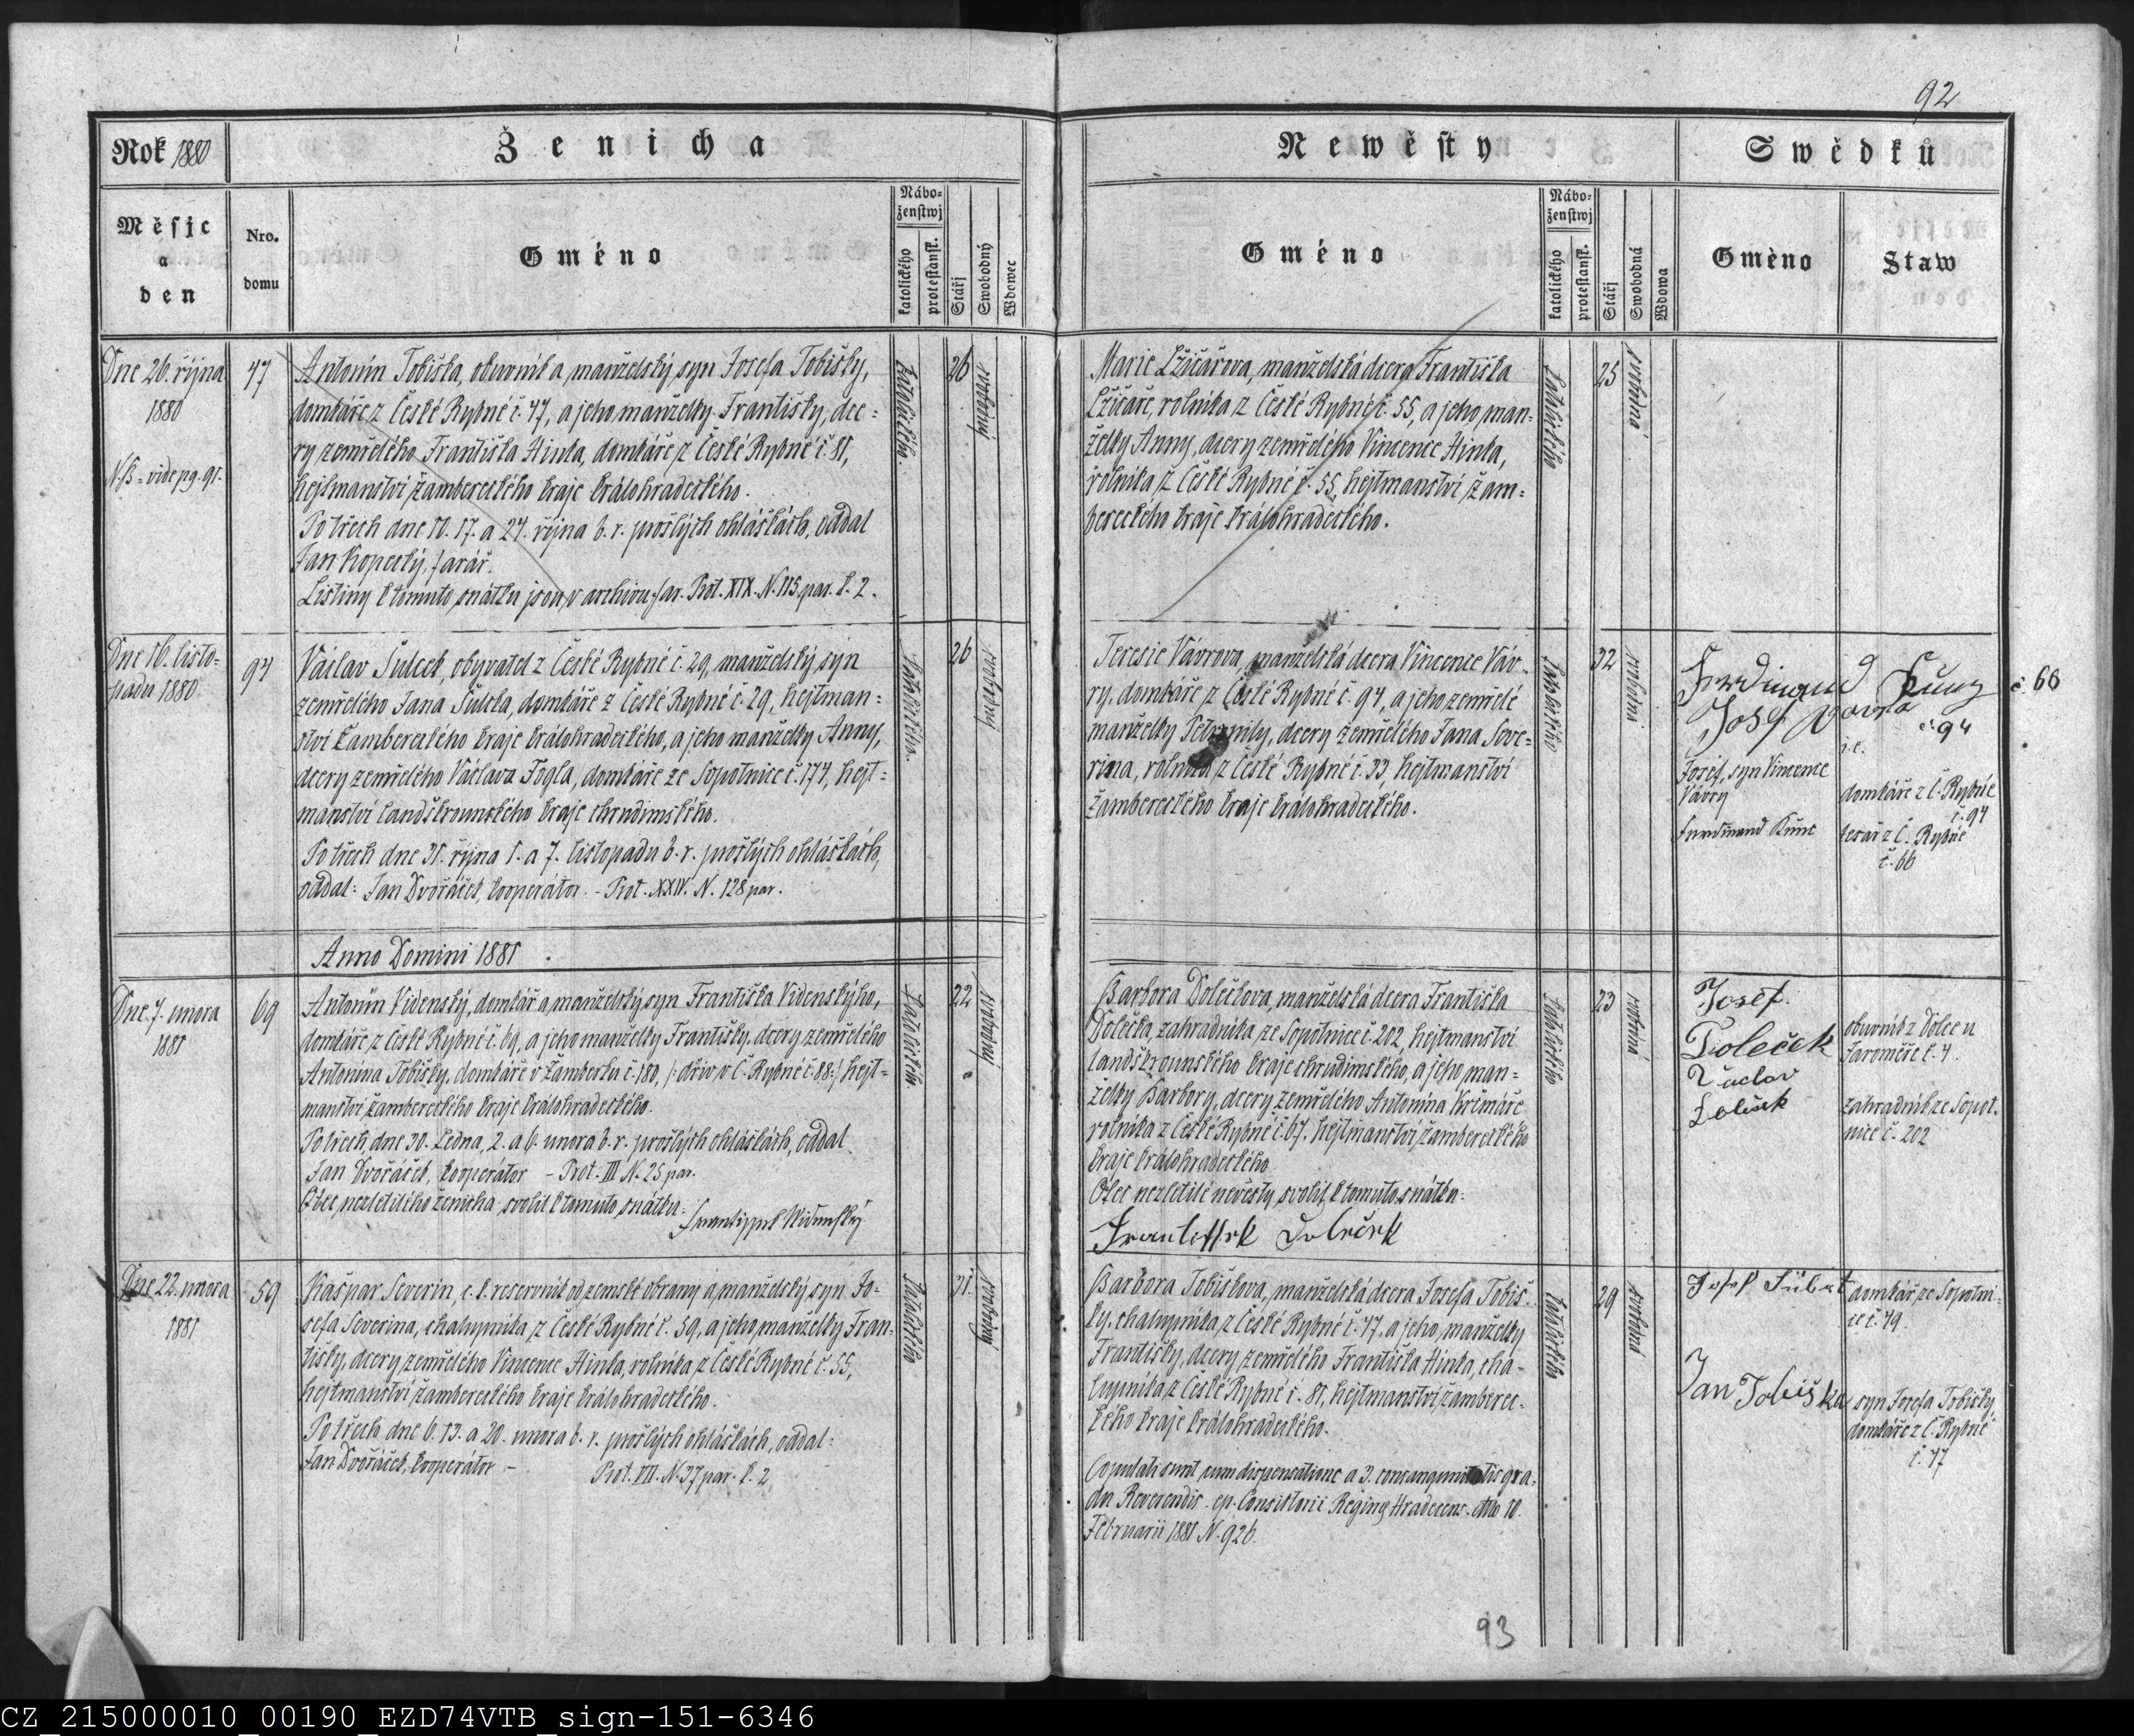 92
Rok 1880
Ženicha
Newěsty
Swědků
Měsjc
a
den
Nro.
domu
Gméno
Nábo-
ženstwj
katolického
protestanst.
Stářj
Swobodný
Wdowec
Gméno
Nábo-
ženstwj
katolického
protestanst.
Stářj
Swobodná
Wdowa
Gméno
Staw
Dne 26. října
1880
NB = vide pg. 91.
47
Antonín Tobiška, obuvník a manželský syn Josefa Tobišky,
domkáře z České Rybné č. 47, a jeho manželky Františky, dce=
ry zemřelého Františka Hinka, domkáře z České Rybné č. 81,
hejtmanství žambereckého kraje králohradeckého.
Po třech dne 10. 17. a 24. října b. r. prošlých ohláškách, oddal
Jan Kopecký, farář.
Listiny k tomuto snátku jsou v archivu far. Prot. XIX. N. 115 par. k. 2.
katolického.
26
svobodný
Marie Lžičařova, manželská dcera Františka
Lžičaře, rolníka z České Rybné č. 55, a jeho man=
želky Anny, dcery zemřelého Vincence Hinka,
rolníka z České Rybné č. 55, hejtmanství žam=
bereckého kraje králohradeckého.
katolického
25
svobodná
Dne 16. listo=
padu 1880.
94
Václav Šulcek, obyvatel z České Rybné č. 29, manželský syn
zemřelého Jana Šulcka, domkáře z České Rybné č. 29, hejtman=
ství žambereckého kraje králohradeckého, a jeho manželky Anny,
dcery zemřelého Václava Fogla, domkáře ze Sopotnice č. 174, hejt=
manství landškrounského kraje chrudimského.
Po třech dne 31. října 1. a 7. listopadu b. r. prošlých ohláškách,
oddal: Jan Dvořáček, kooperátor. - Prot. XXIV. N. 128 par.
katolického.
26
svobodný
Teresie Vávrova, manželská dcera Vincence Váv-
ry, domkáře z České Rybné č. 94, a jeho zemřelé
manželky Petronily, dcery zemřelého Jana Seve=
rina, rolníka z České Rybné č. 33, hejtmanství
žambereckého kraje králohradeckého.
katolického
32
svobodná
Ferdinand Kunz č. 66
Josef Vavra
č. 94
j. e.
Josef, syn Vincence
Vávry
domkáře z Č. Rybné
č. 94
Ferdinand Kunc
tesař z Č. Rybné
č. 66
Anno Domini 1881
Dne 7. unora
1881
69
Antonín Videnský, domkář a manželský syn Františka Videnskýho,
domkáře z České Rybné č. 69, a jeho manželky Františky, dcery zemřelého
Antonína Tobišky, domkáře v Žamberku č. 180, /: dřív v Č. Rybné č. 88 :/ hejt=
manství žambereckého kraje králohradeckého.
Po třech, dne 30. ledna, 2. a 6. unora b. r. prošlých ohláškách, oddal
Jan Dvořáček, kooperátor - Prot. III N. 25 par.
Otec nezletilého ženicha svolil k tomuto snátku:
Frantissek Widenský
22
svobodný
Barbora Dolečkova, manželská dcera Františka
Dolečka, zahradníka ze Sopotnice č. 202, hejtmanství
landškrounského kraje chrudimského, a jeho man=
želky Barbory, dcery zemřelého Antonína Krčmáře
rolníka z České Rybné č. 67, hejtmanství žambereckého
kraje králohradeckého
Otec nezletilé nevěsty svolil k tomuto snátku:
Frantissek Doleček
katolického
23
svobodná
Josef
Doleček
Václav
Doleček
obuvník z Dolce u
Jaroměře č. 4.
zahradník ze Sopot.
nice č. 202
Dne 22. unora
1881
59
Kašpar Severin, c. k. reservník od zemské obrany a manželský syn Jo=
sefa Severina, chalupníka z České Rybné č. 59, a jeho manželky Fran=
tišky, dcery zemřelého Vincence Hinka, rolníka z České Rybné č. 55,
hejtmanství žambereckého kraje králohradeckého.
Po třech dne 6. 13. a 20. unora b. r. prošlých ohláškách, oddal:
Jan Dvořáček, kooperátor - Prot. VII. N. 37 par. k. 2.
katolického
31.
svobodný
Barbora Tobiškova, manželská dcera Josefa Tobiš-
ky, chalupníka z České Rybné č. 47, a jeho manželky
Františky, dcery zemřelého Františka Hinka, cha-
lupníka z České Rybné č. 81, hejtmanství žamberec-
kého kraje králohradeckého.
Copulati sunt cum dispensatione a 3. consanguinitatis gra-
du Reverendis. ep. Consistorii Reginæ Hradecens. ddto 10.
Februarii 1881 N. 926.
katolického
29
svobodná
domkář ze Sopotni-
ce č. 49.
Jan Tobiška
syn Josefa Tobišky,
domkáře z Č. Rybné
č. 47
93
CZ_215000010_00190_EZD74VTB_sign-151-6346